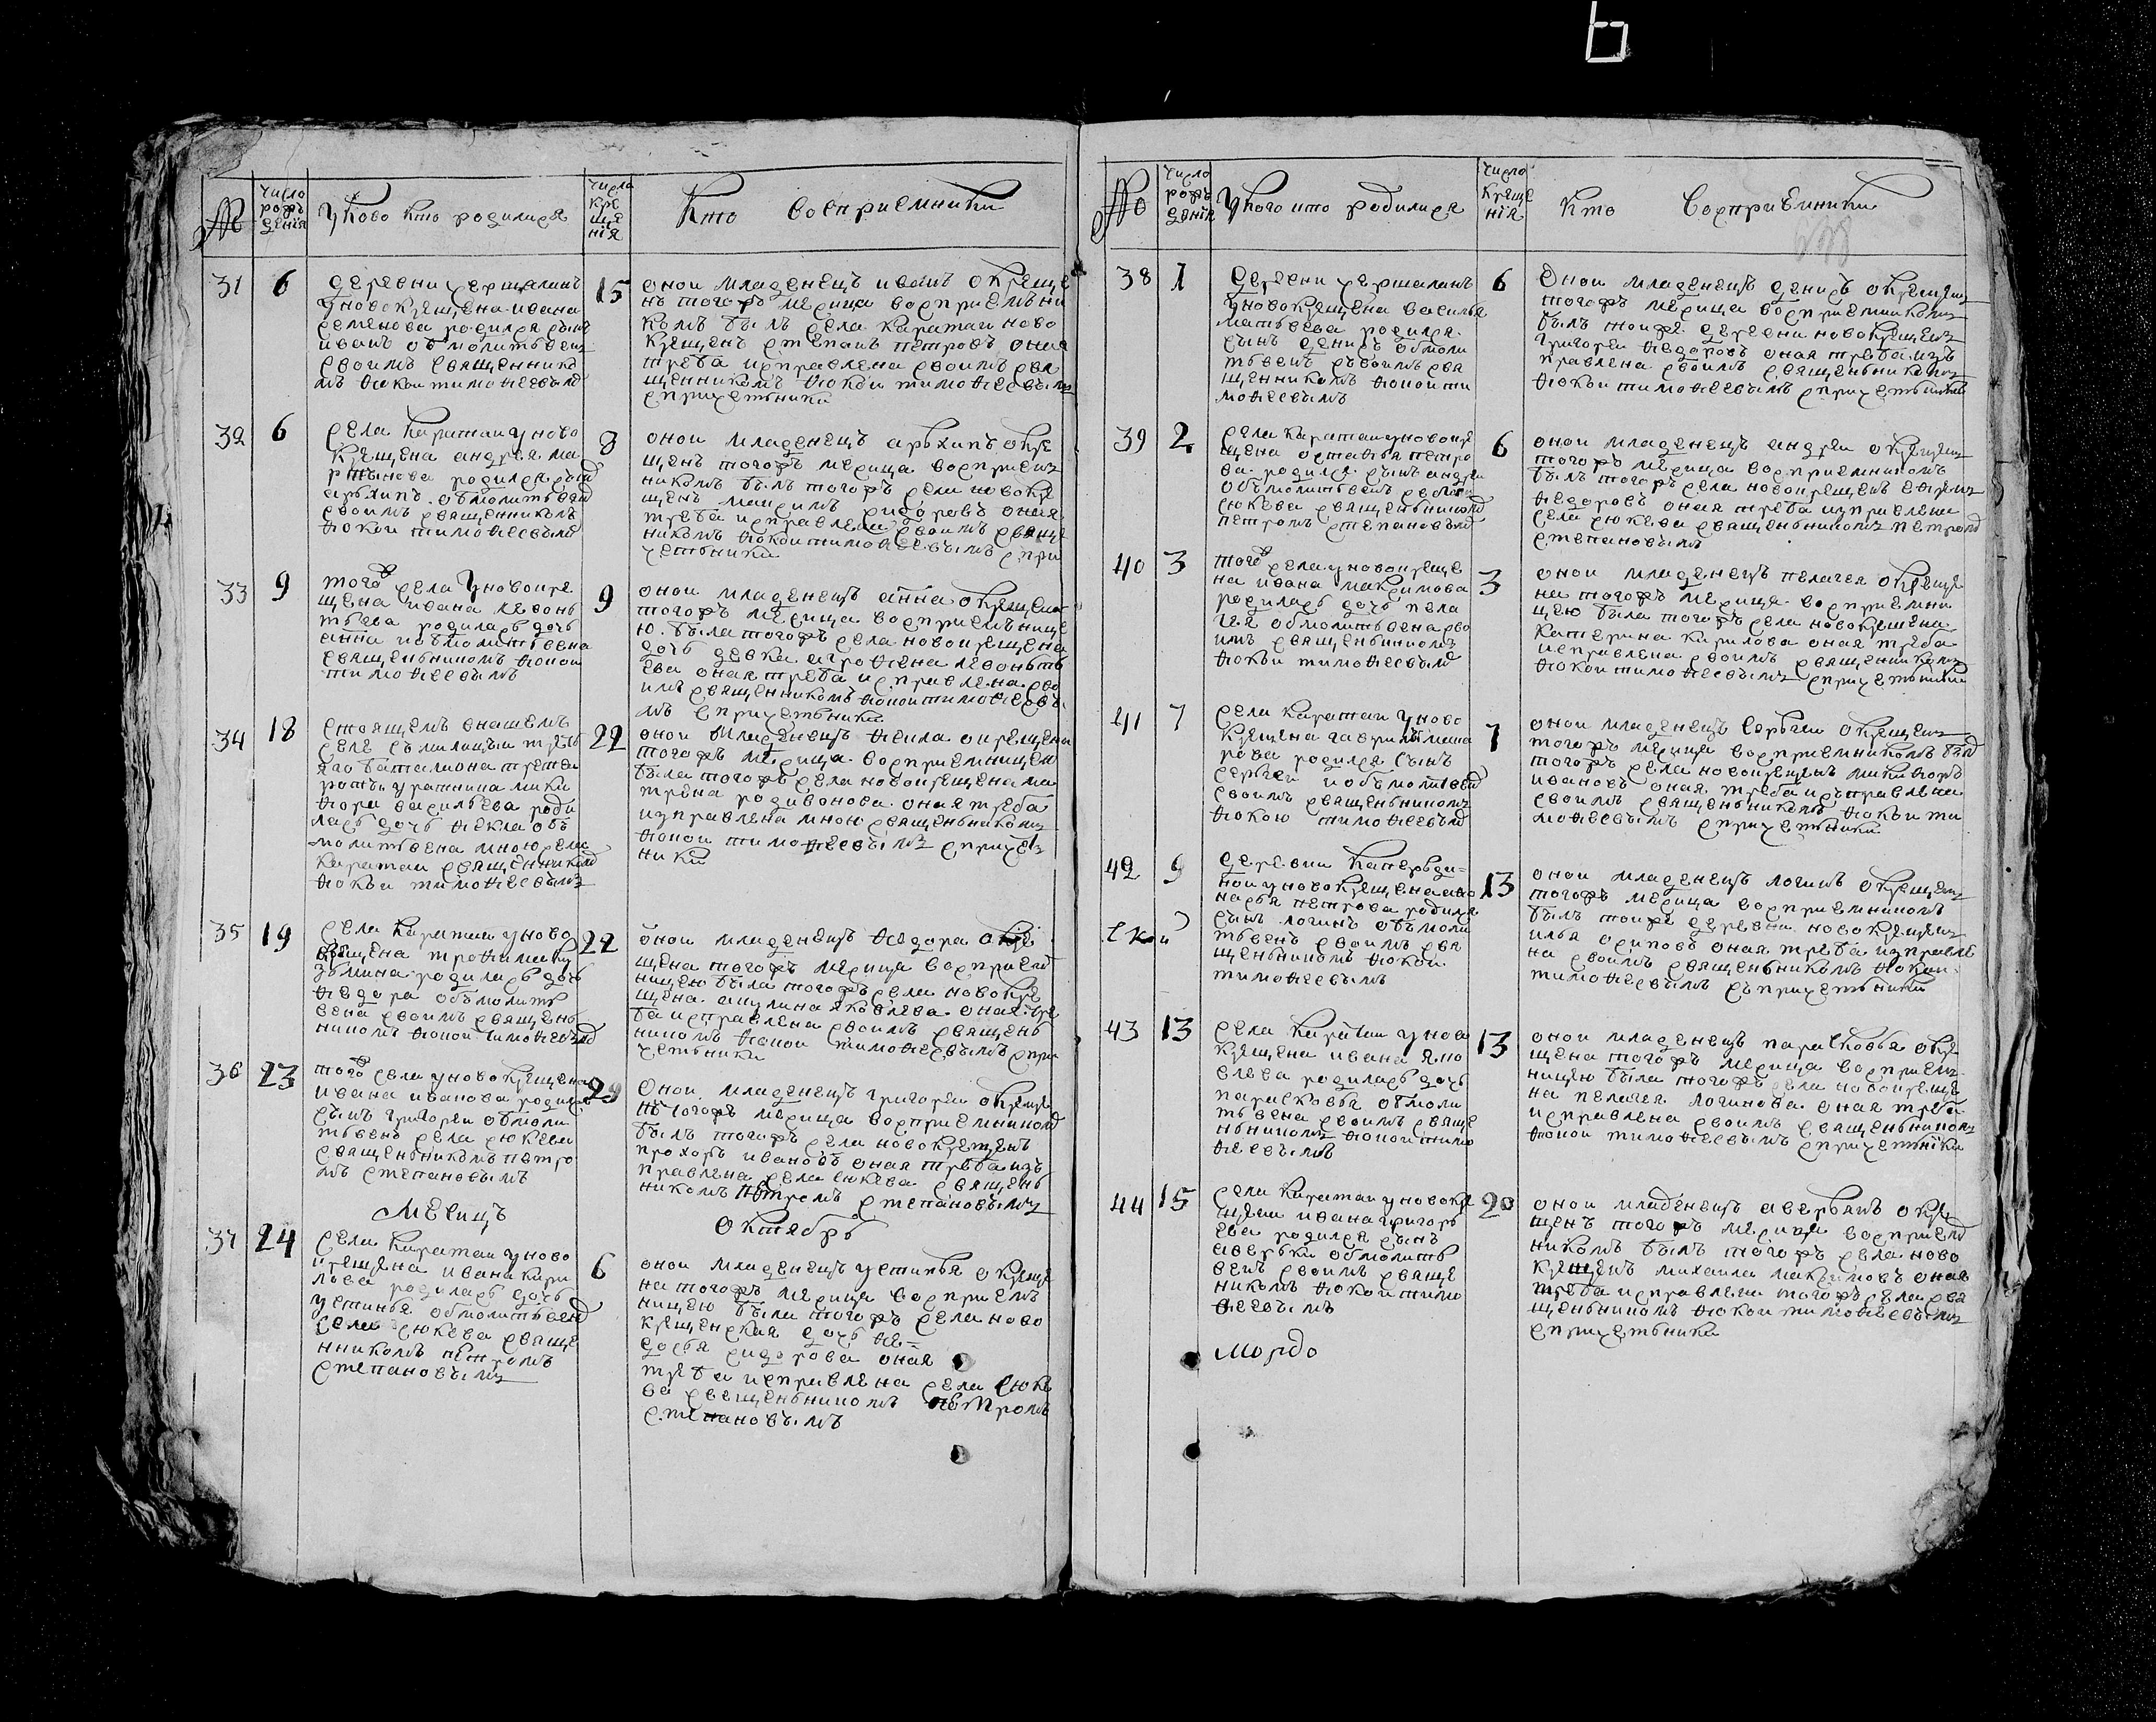 №
число рожъ дения
У ково кто родилися
числа кре щения
Кто восприемники
31
6
деревни
у новокрещена ивана
семенова родился сынъ
иванъ обмолитвенъ
своимъ священнико
мъ фокои тимофеевымъ
15
онои младенецъ иванъ окреще
нъ тогожъ месяца восприемни
комъ былъ села каратаи ново
крещенъ степанъ петровъ оная
треба исправлена своимъ свя
щенникомъ фокои тимофеевымъ
спричетники
32
6
села каратаи у ново
крещена андрея ма
ртынова родился сынъ
архипъ обмолитвенъ
своимъ священникомъ
фокои тимофеевымъ
8
онои младенецъ архипъ окре
щенъ тогожъ месяца восприем
никомъ былъ тогожъ села новокре
щенъ сидоровъ оная
треба исправлена своимъ свяще
никомъ фокои тимофеевымъ спри
четники
33
9
тогожъ села у новокре
щена ивана левонь
тьева родилась дочь
анна и обмолитвена
священникомъ фокои
тимофеевымъ
9
онои младенецъ анна окрещена
тогожъ месяца восприемънице
ю была тогожъ села новокрещена
дочь девка агрофена левонть
ева оная треба исправлена сво
имъ священникомъ фокои тимофеевы
мъ спричетники
34
18
стоящемъ внашемъ
селе
баталиона
роты ратника ники
фора васильева роди
лась дочь фекла объ
молитвена мною села
каратаи священникомъ
фокои тимофеевымъ
22
онои младенецъ фекла окрещена
тогожъ месяца восприемницею
была тогожъ села новокрещена ма
трена родивонова оная треба
изправлена мною священникомъ
фокои тимофеевымъ спричет
ники
35
19
села каратаи у ново
крещена трофима ку
зьмина родилась дочь
федора обмолитв
вена своимъ священь
никомъ фокои тимофеевымъ
22
онои младенецъ федора окре
щена тогожъ месяца восприем
ницею была тогожъ села новокре
щена акулина яковлева оная тре
ба исправлена своимъ священь
никомъ фокои тимофеевымъ спри
четники
36
23
тогожъ села у новокрещена
ивана иванова родился
сынъ григореи обмоли
твенъ села сюкева
священникомъ петро
мъ степановымъ
29
онои младенецъ григореи окреще
нъ тогожъ месяца восприемникомъ
былъ тогожъ села новокрещенъ
прохоръ ивановъ оная треба из
правлена села сюкева священь
никомъ петромъ степановымъ
Месяцъ
Октябрь
37
24
села каратаи у ново
крещена ивана кири
лова родилась дочь
устинья обмолитвена
села сюкева свяще
нникомъ петромъ
степановымъ
6
онои младенецъ устинья окреще
на тогожъ месяца восприемъ
ницею была тогожъ села ново
крещенская дочь фе=
досья сидорова оная
треба исправлена села сюке
ва священьникомъ петромъ
степановымъ
№
число рожъ дения
У кого кто родилися
число креще ния
Кто восприемники
38
1
деревни
у новокрещена василья
матвеева родился
сынъ денисъ обмоли
твенъ своимъ свя
щенникомъ фокои ти
мофеевымъ
6
Онои младенецъ денисъ окрещенъ
тогожъ месяца восприемникомъ
былъ тоиже деревни новокрещенъ
григореи федоровъ оная треба из
правлена своимъ священьникомъ
фокои тимофеевымъ спричетники
39
2
села каратаи у новокре
щена петро
ва родился сынъ андреи
объмолитвенъ села
сюкева священьникомъ
петромъ степановымъ
6
онои младенецъ андреи окрещенъ
тогожъ месяца восприемникомъ
былъ тогожъ села новокрещенъ ефремъ
федоровъ оная треба изправлена
села сюкева священьникомъ петромъ
степановымъ
40
3
тогожъ села у новокреще
на ивана максимова
родилась дочь пела
гея обмолитвена сво
имъ священьникомъ
фокои тимофеевымъ
3
онои младенецъ пелагея окреще
на тогожъ месяца восприемни
цею была тогожъ села новокрещена
катерина кирилова оная треба
исправлена своимъ священникомъ
фокои тимофеевымъ спричетники
41
7
села каратаи у ново
крещена гаврилы мака
рова родился сынъ
сергеи и объмолитвенъ
своимъ священьникомъ
фокою тимофеевымъ
7
онои младенецъ сергеи окрещенъ
тогожъ месяца восприемникомъ былъ
тогожъ села новокрещенъ никифоръ
ивановъ оная треба исправлена
своимъ священьникомъ фокои ти
мофеевымъ спричетники
42
9
деревни
у новокрещена
петрова родился
сынъ логинъ объмоли
твенъ своимъ свя
щеньникомъ фокои
тимофеевымъ
13
онои младенецъ логинъ окрещенъ
тогожъ месяца восприемникомъ
былъ тоиже деревни новокрещенъ
илья осиповъ оная треба изправле
на своимъ священьникомъ фокои
тимофеевымъ съпричетники
ской
43
13
села каратаи у ново
крещена ивана яко
влева родилась дочь
парасковья обмоли
твена своимъ свяще
ньникомъ фокои тимо
феевымъ
13
онои младенецъ парасковья окре
щена тогожъ месяца восприем
ницею была тогожъ села новокреще
на пелагея логинова оная треба
исправлена своимъ священьникомъ
фокои тимофеевымъ спричетники
44
15
села каратаи у новокре
щена ивана григорь
ева родился сынъ
аверьки обмолитв
венъ своимъ свяще
никомъ фокои тимо
феевымъ
20
онои младенецъ аверьянъ окре
щенъ тогожъ месяца восприем
никомъ былъ тогожъ села ново
крещенъ михаила максимовъ оная
треба исправлена тогожъ села свя
щеньникомъ фокои тимофеевымъ
спричетники
Мордо